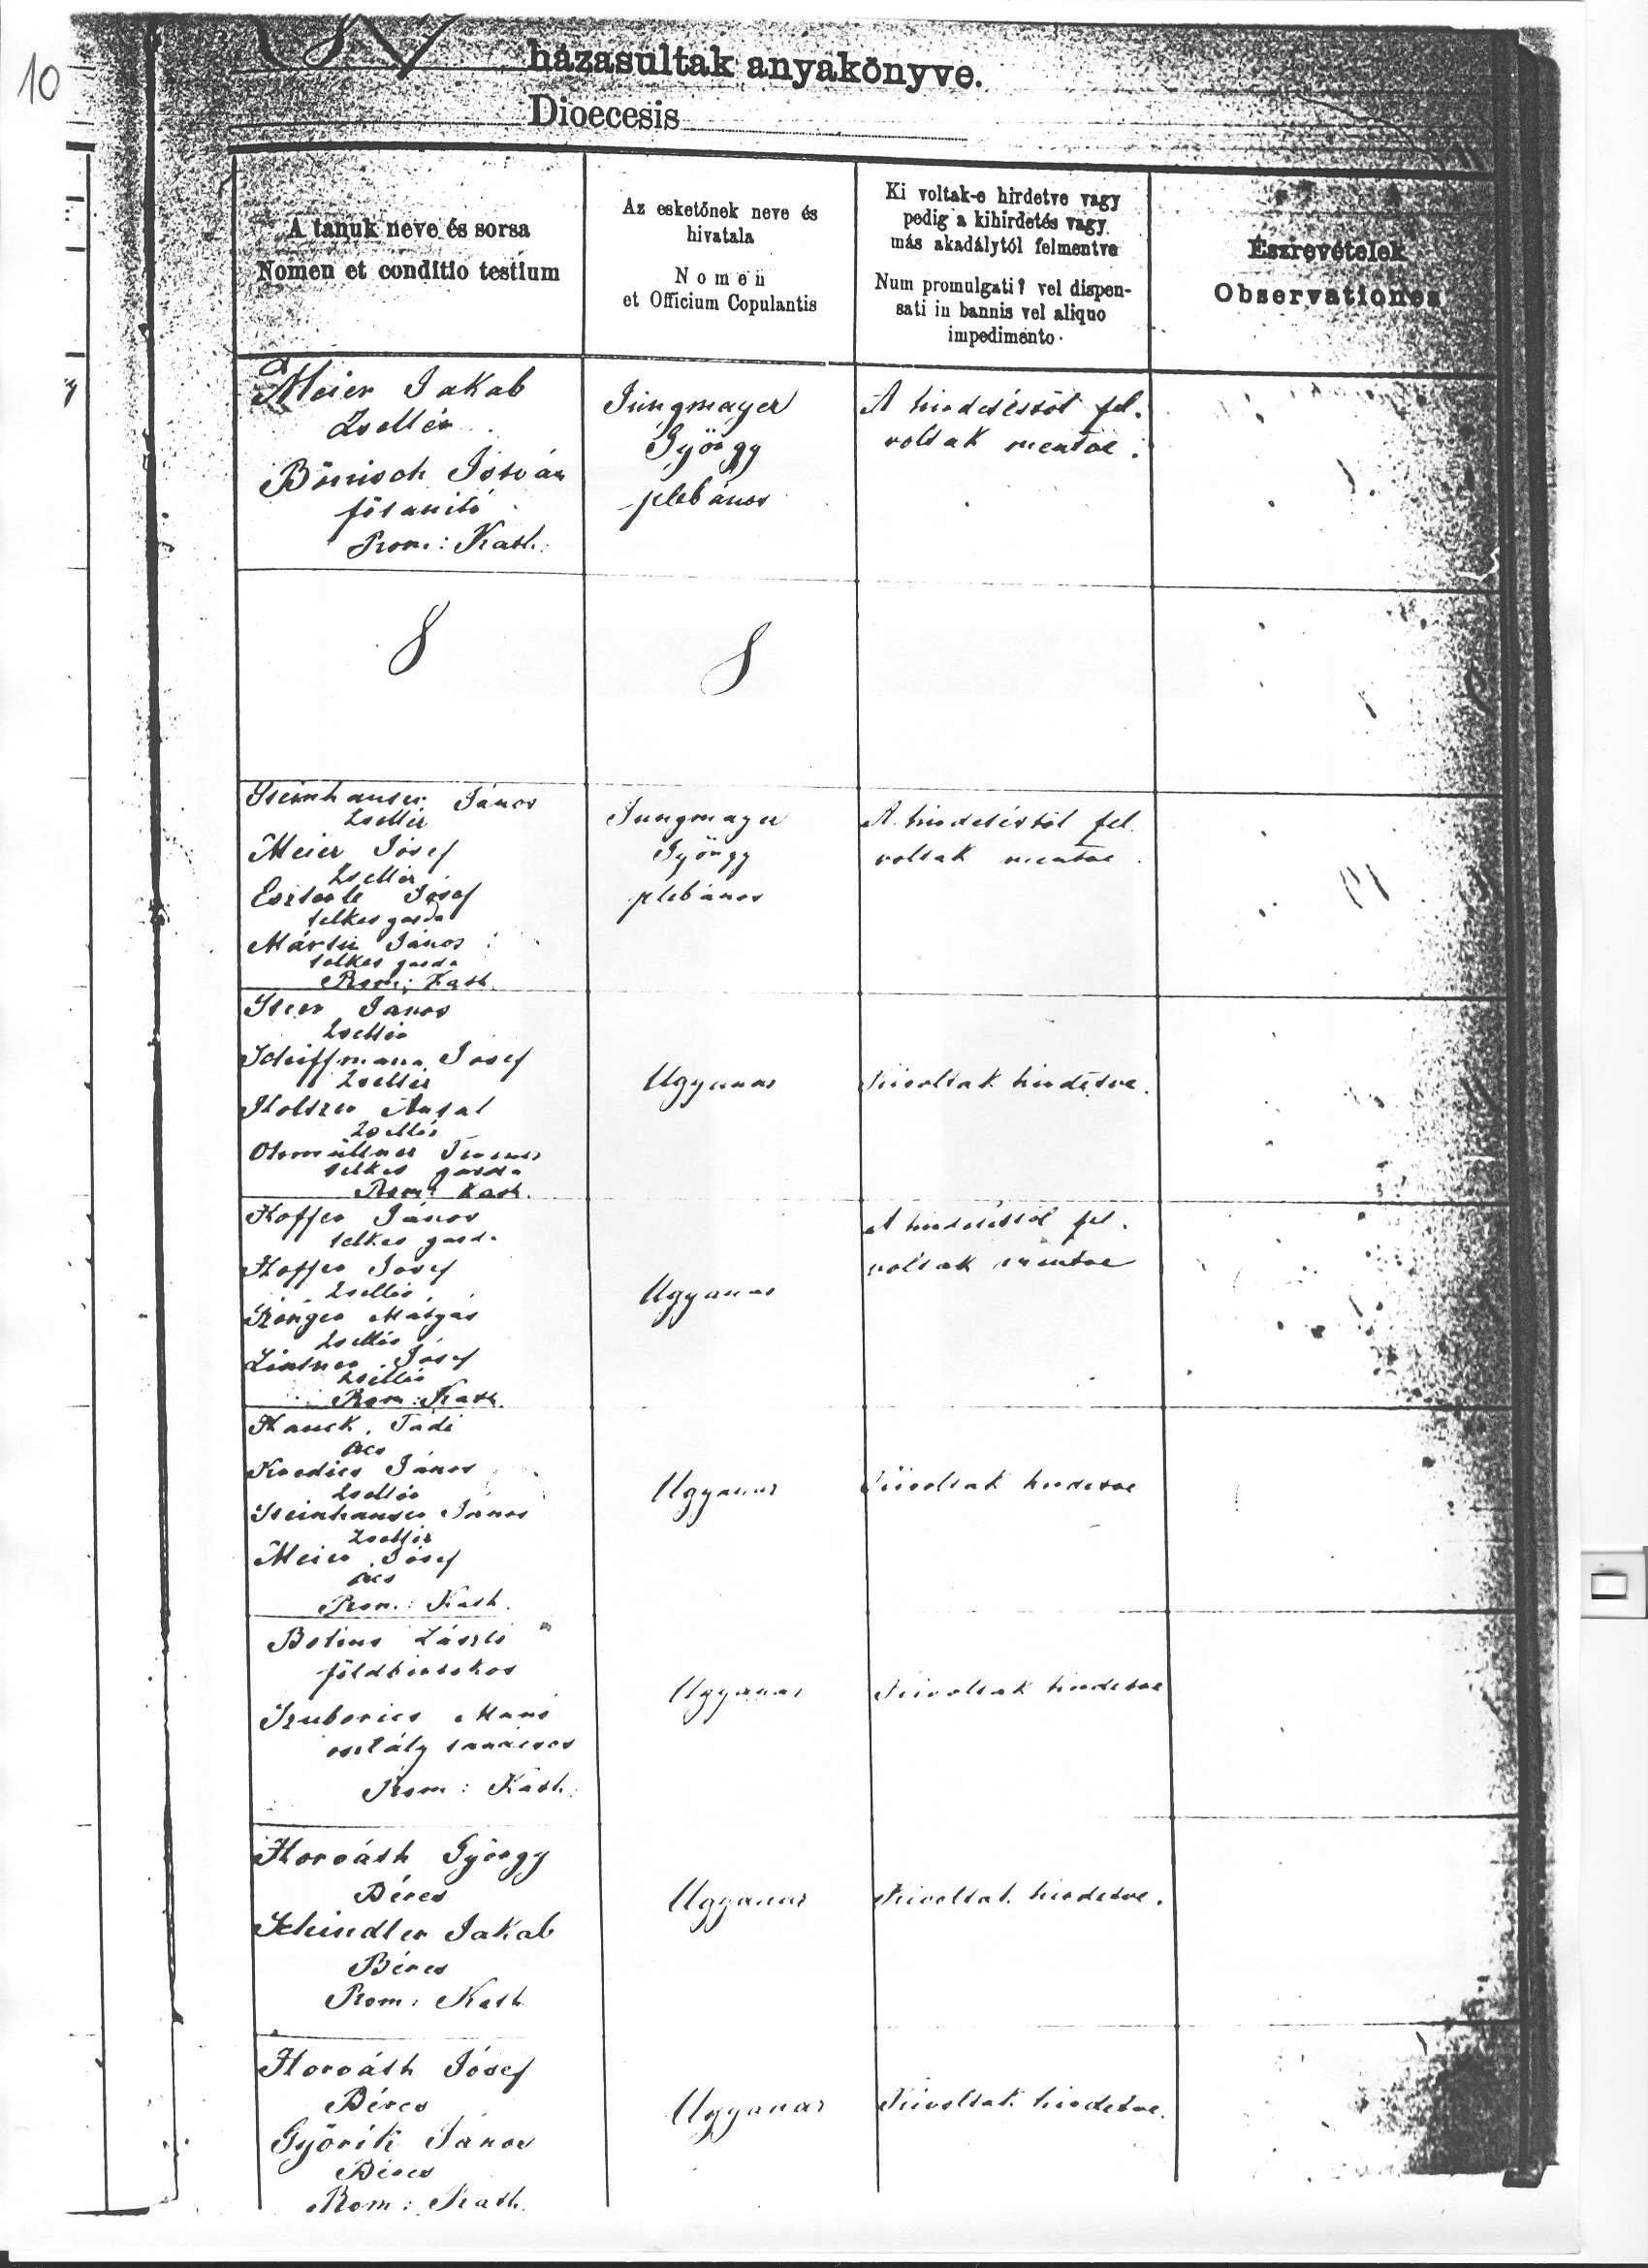 10
házasultak anyakönyve.
Dioecesis
A tanuk neve és sorsa
Nomen et conditio testium
Az esketőnek neve és
hivatala
Nomen
et Officium Copulantis
Ki voltak-e hirdetve vagy
pedig a kihirdetés vagy
más akadálytól felmentve
Num promulgati? vel dispen-
sati in bannis vel aliquo
impedimento.
Észrevételek
Observationes
Meier Jakab
Zsellér
Bönisch István
Rom: Kath.
Jungmayer
György
plebános
A hirdetéstől fel.
voltak mentve.
Steinhauser János
Zsellér
Meier Jósef
Zsellér
Jósef
telkes gazda
János
telkes gazda
Rom: Kath.
Jungmayer
György
plebános
A hirdetéstől fel
voltak mentve.
János
Zsellér
Schiffmann Jósef
Zsellér
Holtzer Antal
Zsellér
telkes gazda
Rom: Kath.
Ugyanaz
Kivoltak hirdetve.
Hoffer János
telkes gazda
Hoffer Jósef
Zsellér
Mátyás
Zsellér
Lintner Jósef
Zsellér
Rom: Kath.
Ugyanaz
A hirdetéstől fel.
voltak mentve
Hauck Tádi
Ács
János
Zsellér
Steinhauser János
Zsellér
Meier Jósef
Ács
Rom: Kath.
Ugyanaz
Kivoltak hirdetve
László
földbirtokos
Manó
osztály tanácsos
Rom: Kath.
Ugyanaz
Kivoltak hirdetve
Horváth György
Béres
Schindler Jakab
Béres
Rom: Kath
Ugyanaz
Kivoltak hirdetve.
Horváth Jósef
Béres
Györik János
Béres
Rom: Kath.
Ugyanaz
Kivoltak hirdetve.